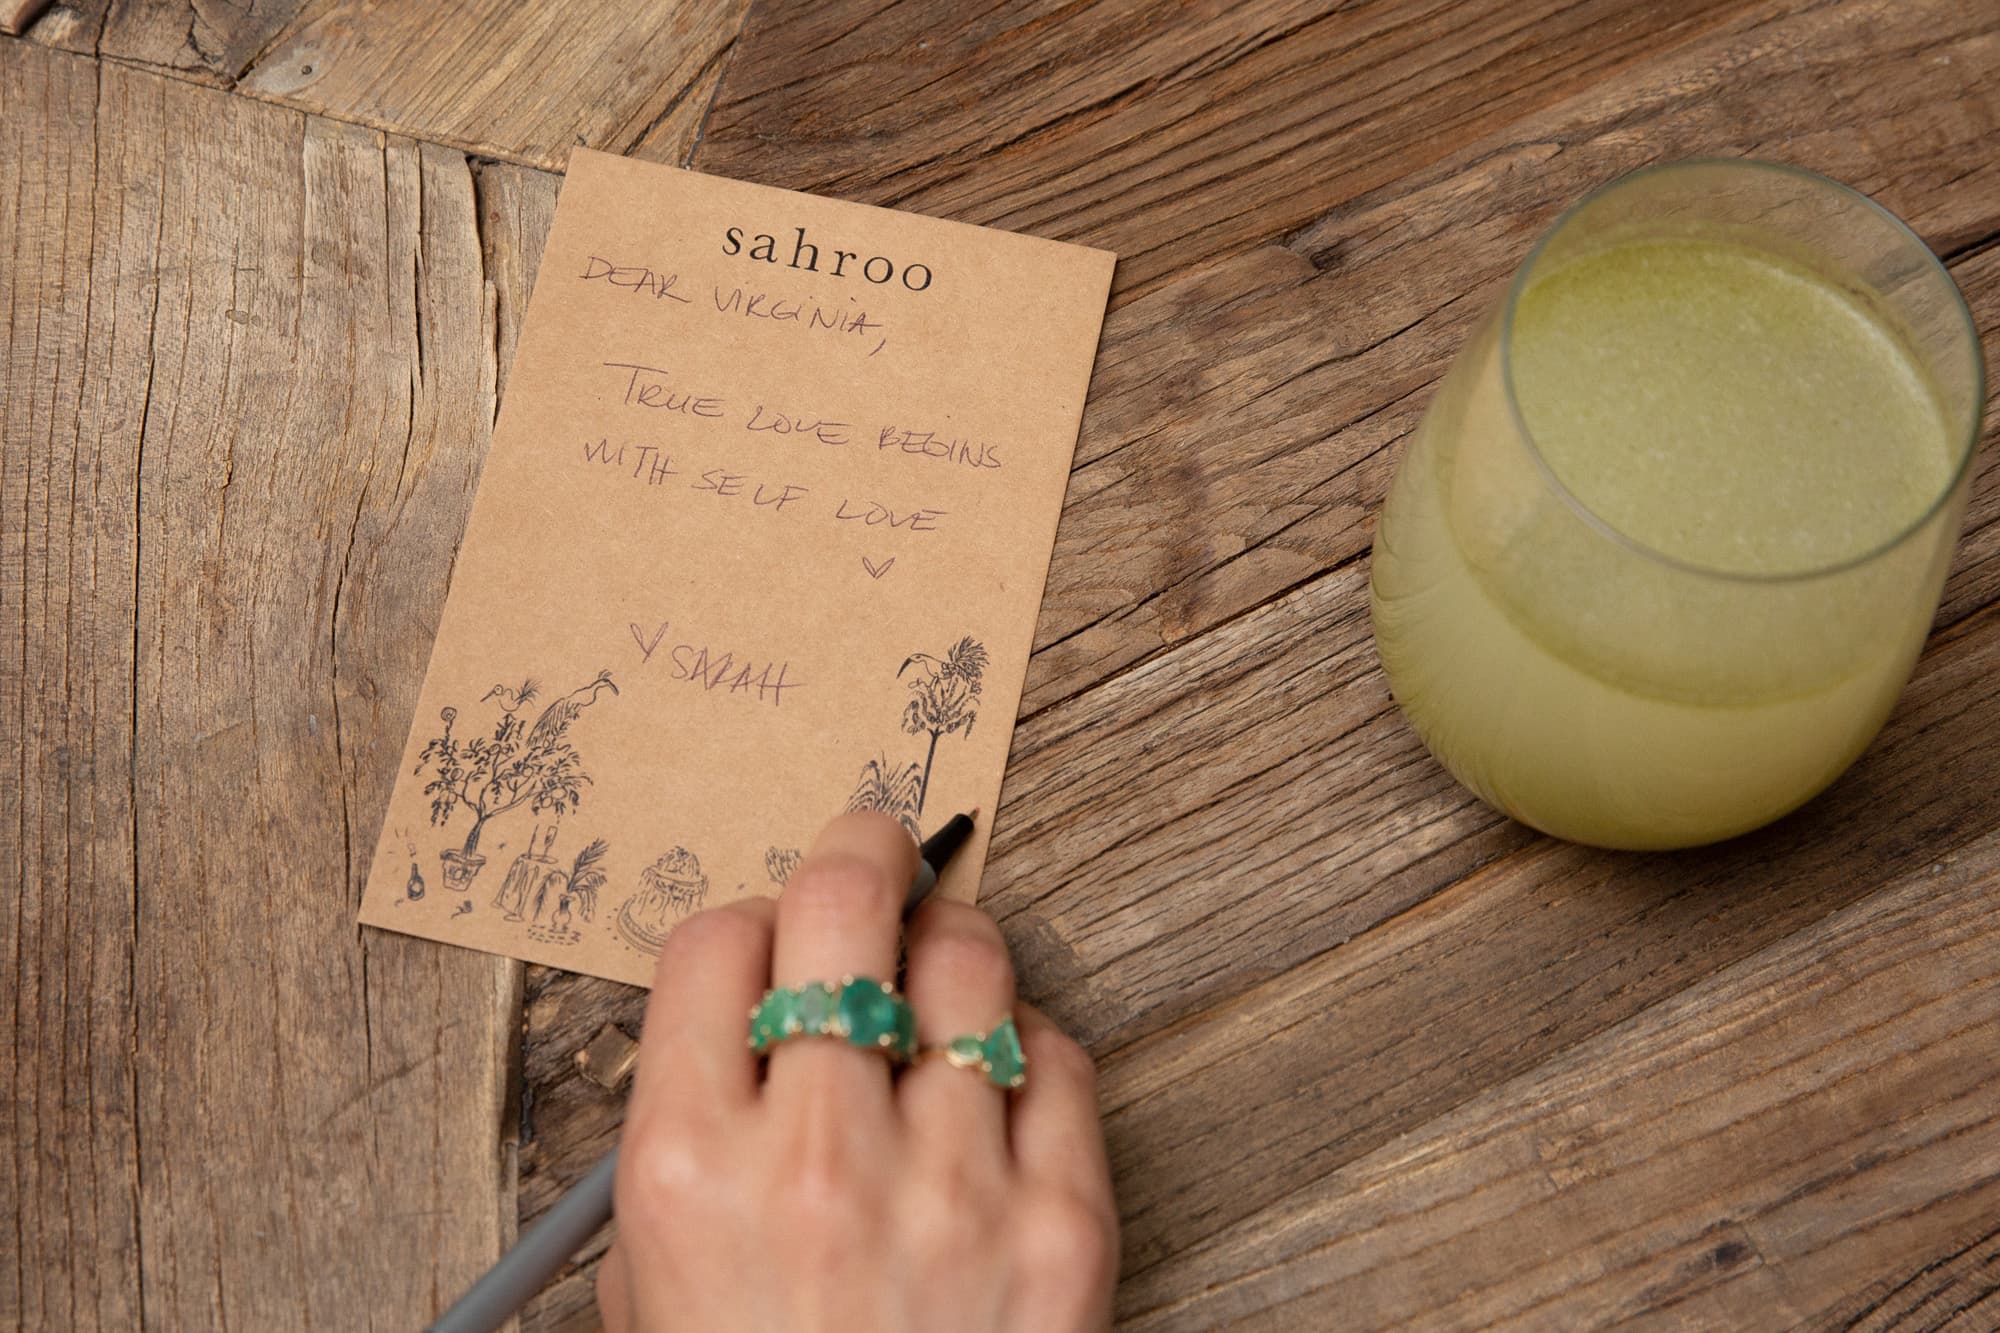 sahroo
DEAR VIRGINIA,
TRUE LOVE BEGINS
WITH SELF LOVE
♡
♡ SARAH